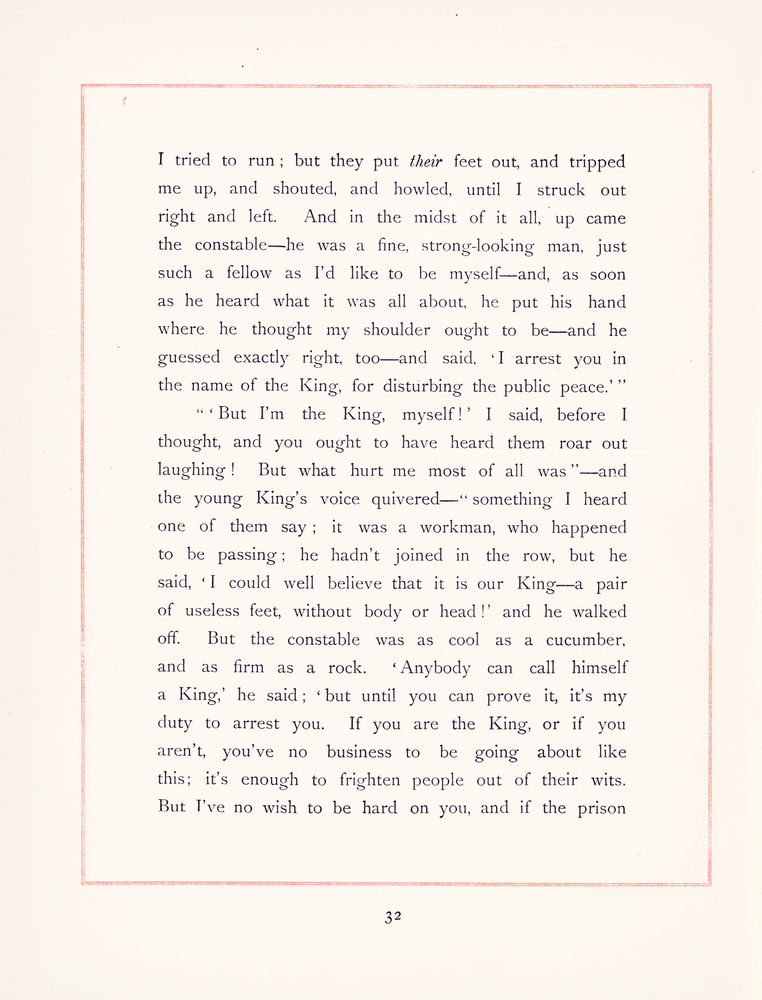 I tried to run ; but they put their feet out, and tripped
me up, and shouted, and howled, until I struck out
right and left. And in the midst of it all, up came
the constable—he was a fine, strong-looking man, just
such a fellow as I’d like to be myself—and, as soon
as he heard what it was all about, he put his hand
where he thought my shoulder ought to be—and he
guessed exactly right, too—and said, ‘I arrest you in
the name of the King, for disturbing the public peace.’ ”
“ ‘ But I’m the King, myself ! ’ I said, before I
thought, and you ought to have heard them roar out
laughing ! But what hurt me most of all was ”—and
the young King’s voice quivered—“ something I heard
one of them say ; it was a workman, who happened
to be passing ; he hadn’t joined in the row, but he
said, ‘ I could well believe that it is our King—a pair
of useless feet, without body or head ! ’ and he walked
off. But the constable was as cool as a cucumber,
and as firm as a rock. ‘ Anybody can call himself
a King,’ he said ; ‘ but until you can prove it, it’s my
duty to arrest you. If you are the King, or if you
aren’t, you’ve no business to be going about like
this ; it’s enough to frighten people out of their wits.
But I’ve no wish to be hard on you, and if the prison
32